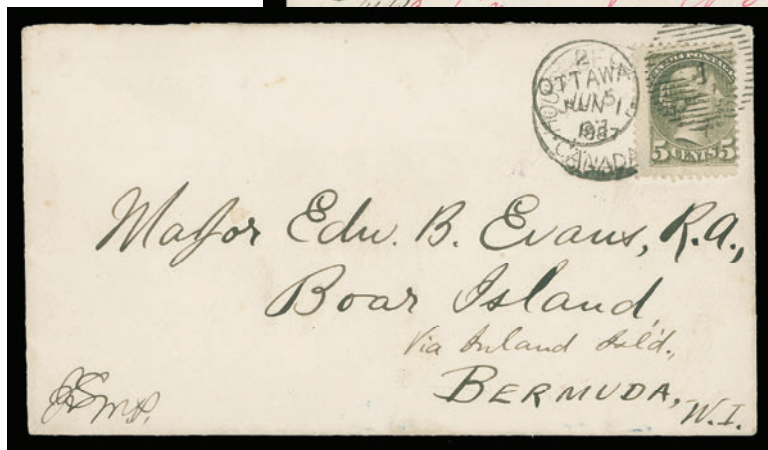 OTTAWA
JUN 1
CANADA
5 CENTS 5
Major Edw. B. Evans, R.A.,
Boar Island,
Via Ireland Isld.,
BERMUDA, W.I.